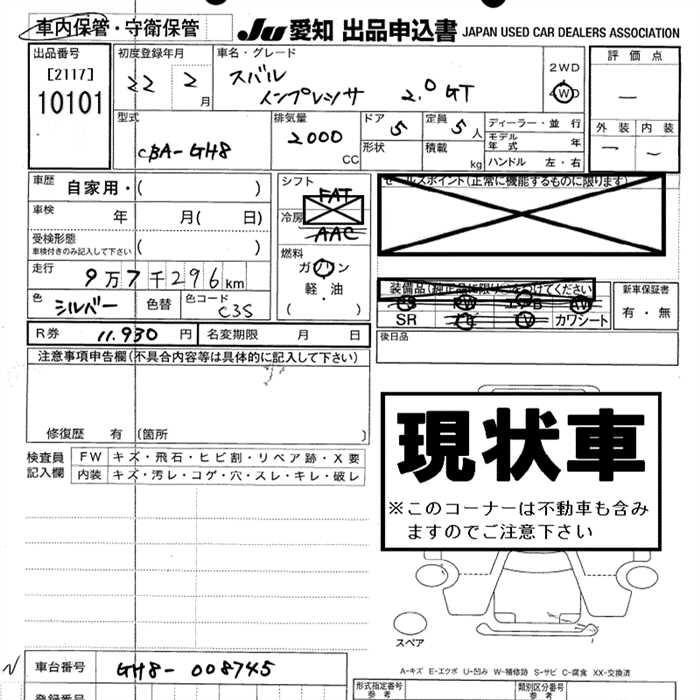 車内保管・守衛保管
JU 愛知 出品申込書 JAPAN USED CAR DEALERS ASSOCIATION
出品番号
[2117]
10101
初度登録年月
22 2 月
車名・グレード
スバル
インプレッサ 2.0GT
2WD
4WD
評価点
—
外装 内装
型式
CBA-GH8
排気量
2000 CC
ドア 5
形状
定員 5 人
積載 kg
ディーラー・並行
モデル年式 年
ハンドル 左・右
車歴 自家用・( )
車検 年 月( 日)
受検形態
車検付きのみ記入して下さい ( )
走行
9万7千296km
色 シルバー 色替 色コード C3S
シフト FAT
冷房 AAC
燃料
ガソリン
軽・油
( )
セールスポイント(正常に機能するものに限ります)
装備品(純正品に限り○をつけてください)
SR TV カワシート
新車保証書
有・無
R券 11,930 円 名変期限 月 日
後日品
注意事項申告欄(不具合内容等は具体的に記入して下さい)
修復歴 有 (箇所 )
現状車
※このコーナーは不動車も含みますのでご注意下さい
検査員記入欄
FW キズ・飛石・ヒビ割・リペア跡・X要
内装 キズ・汚レ・コゲ・穴・スレ・キレ・破レ
スペア
A-キズ E-エクボ U-凹み W-補修跡 S-サビ C-腐食 XX-交換済
車台番号 GH8-008745
登録番号
形式指定番号
参考
類別区分番号
参考